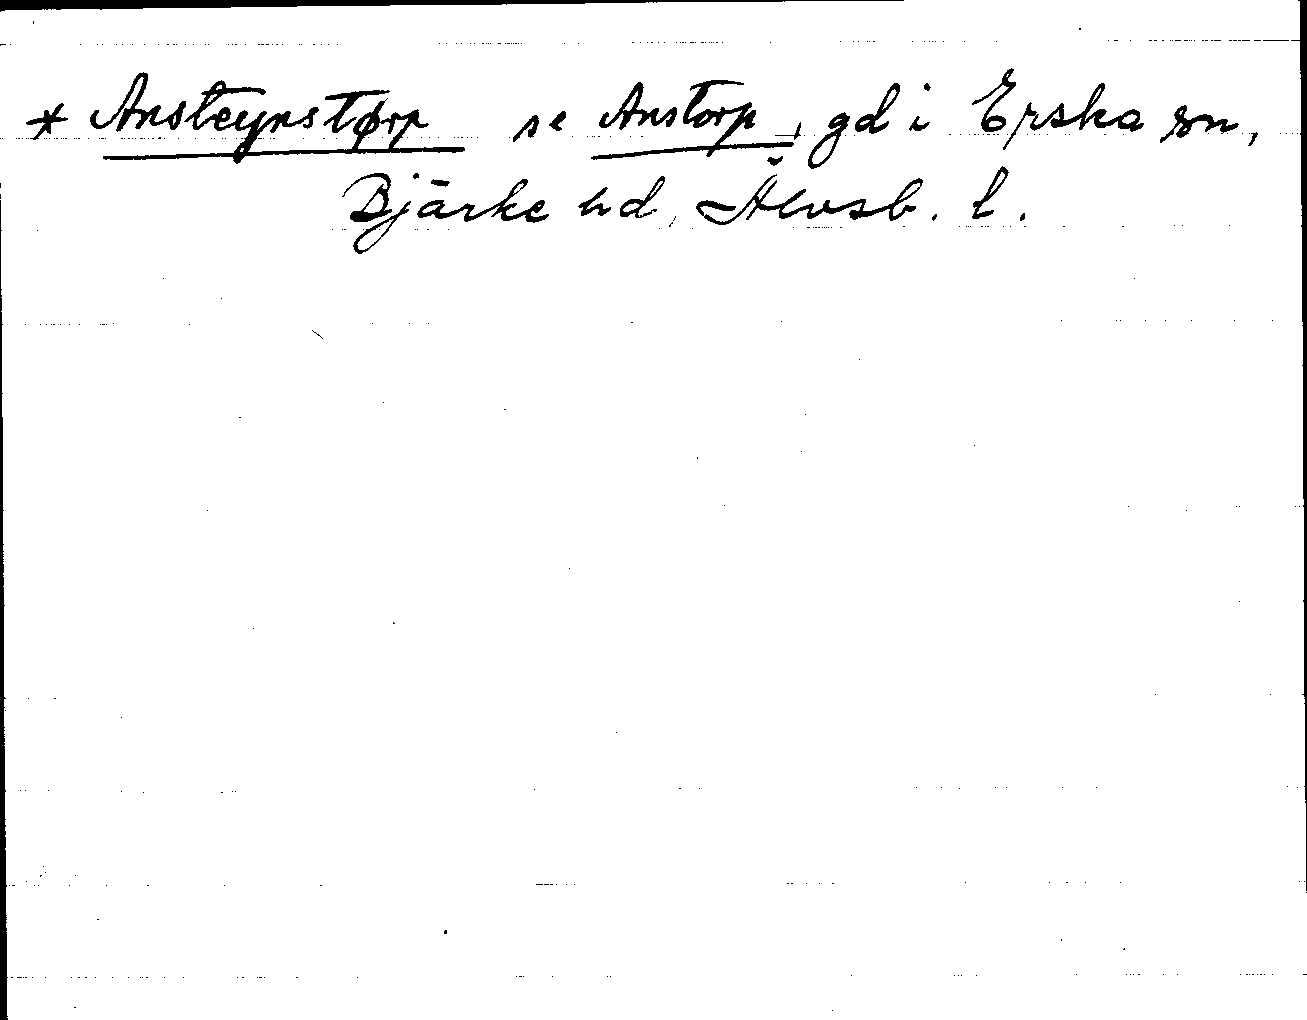 * Ansteynstørp se Anstorp, gd i Erska sn,
Bjärke hd, Älvsb. l.